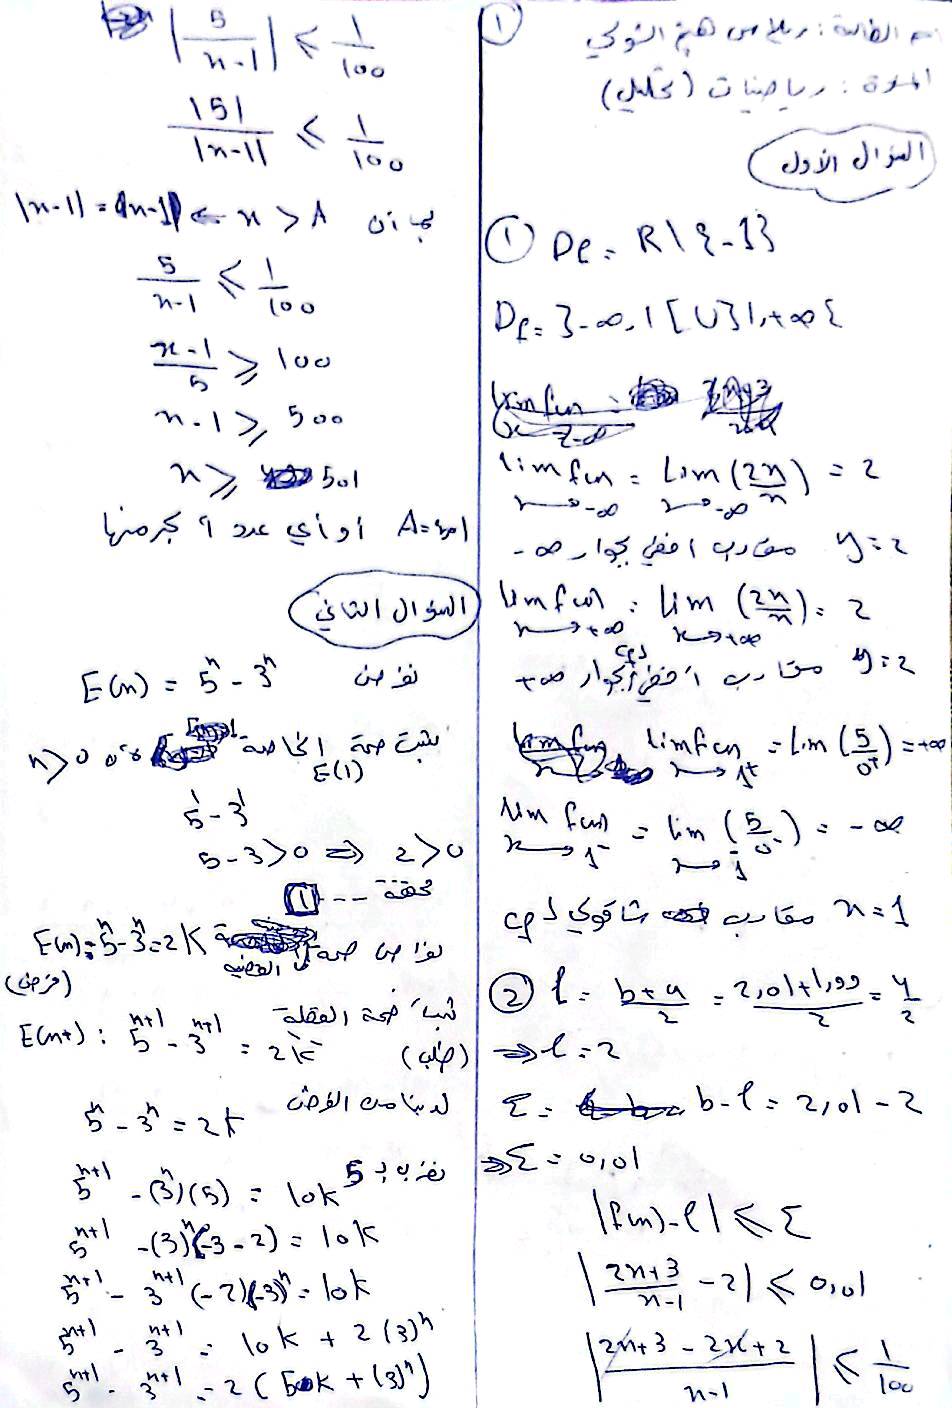 1
اسم الطالبة :
المادة : رياضيات (تحليل)
السؤال الأول
① Df = R\{-1}
Df = ]-∞,1[ U ]1,+∞[
lim f(x) = lim (2x/x) = 2
x→-∞ x→-∞
y=2 مقارب افقي بجوار -∞
lim f(x) = lim (2x/x) = 2
x→+∞ x→+∞
y=2 مقارب افقي بجوار +∞
lim f(x) = lim (5/0+) = +∞
x→1+
lim f(x) = lim (5/0-) = -∞
x→1- x→1-
x=1 مقارب شاقولي لـ cf
② l = b+a/2 = 2,01+1,99/2 = 4/2
⇒ l = 2
ε = b-l = 2,01-2
⇒ ε = 0,01
|f(x)-l| ≤ ε
|2x+3/x-1 - 2| ≤ 0,01
|2x+3-2x+2/x-1| ≤ 1/100
|5/x-1| ≤ 1/100
|5|/|x-1| ≤ 1/100
بما أن x > A ⇐ |x-1| = (x-1)
5/x-1 ≤ 1/100
x-1/5 ≥ 100
x-1 ≥ 500
x ≥ 501
A=501 أو أي عدد أكبر منها
السؤال الثاني
نفرض E(n) = 5^n - 3^n
نثبت صحة الخاصة n>0
E(1)
5^1 - 3^1
5-3>0 ⇒ 2>0
محققة --- 1
نفرض صحة القضية E(n) = 5^n-3^n=2k
(فرض)
نثبت صحة القضية
E(n+1) : 5^n+1 - 3^n+1 = 2k' (طلب)
لدينا من الفرض
5^n - 3^n = 2k
نضرب بـ 5
5^n+1 - (3^n)(5) = 10k
5^n+1 - (3)^n(3-2) = 10k
5^n+1 - 3^n+1 (-2)(3)^n = 10k
5^n+1 - 3^n+1 = 10k + 2(3)^n
5^n+1 - 3^n+1 = 2(5k + (3)^n)